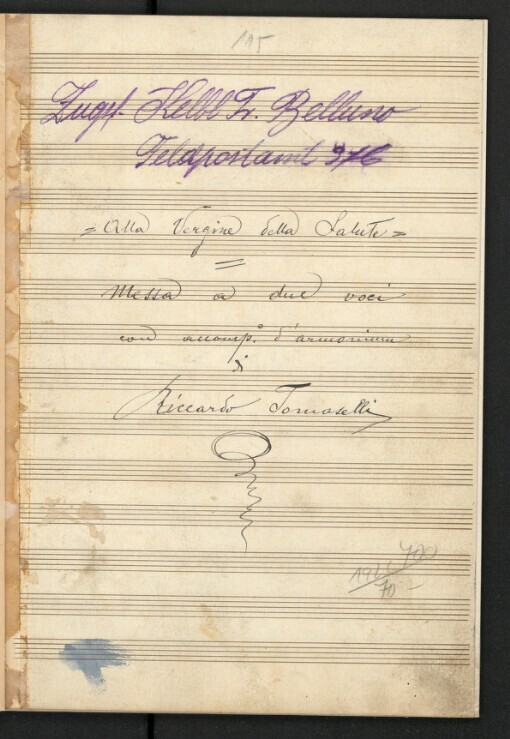 115
Zugsf. Hebl Fr. Belluno
Feldpostamt
= Alla Vergine della Salute =
Messa a due voci
con accomp.º d'armonium
di
Riccardo Tomaselli
700
70 -